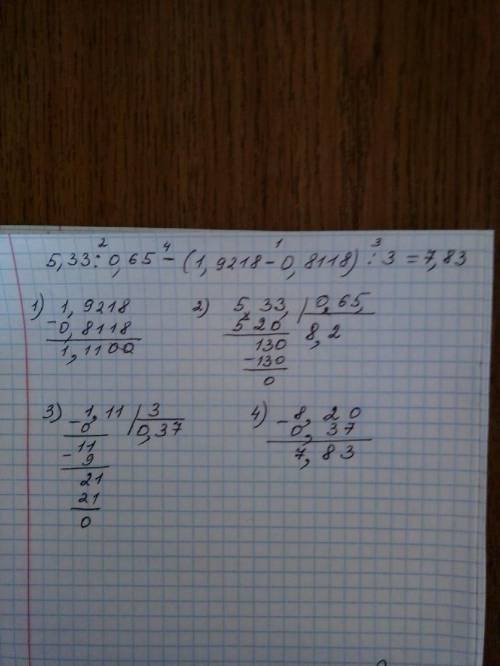 2 4 1 3
5,33 : 0,65 - (1,9218 - 0,8118) : 3 = 7,83
1) 1,9218
- 0,8118
1,1100
2) 5,33, | 0,65,
520 8,2
130
-130
0
3) - 1,11 | 3
0 0,37
- 11
9
21
21
0
4) - 8,20
0,37
7,83